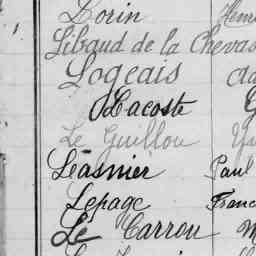 Lorin Henri
Libaud de la Chevas
Logeais
Lacoste
Le Guillou
Léasnier Paul
Lepage Franc
Le Carrou M